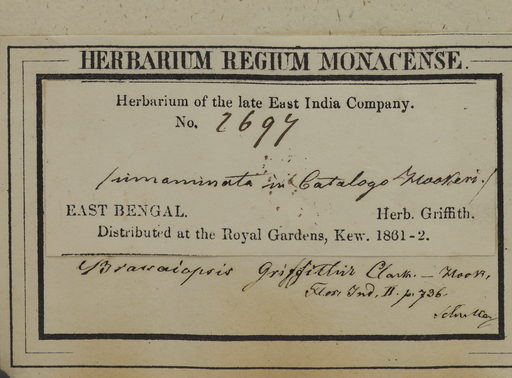 HERBARIUM REGIUM MONACENSE.
Herbarium of the late East India Company.
No. 2697
(innominata in Catalogo Hookeri.)
EAST BENGAL. Herb. Griffith.
Distributed at the Royal Gardens, Kew. 1861-2.
Brassaiopsis Griffithii Clark. — Hook.
Flor. Ind. II. p. 736.